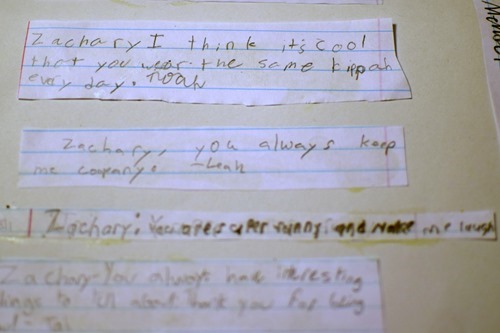 Zachary I think it's cool
that you wear the same kippah
every day. Noah
Zachary, you always keep
me company. -Leah
Zachary: You are super funny! and make me laugh
Zachary-You always had interesting
things to tell about thank you for being